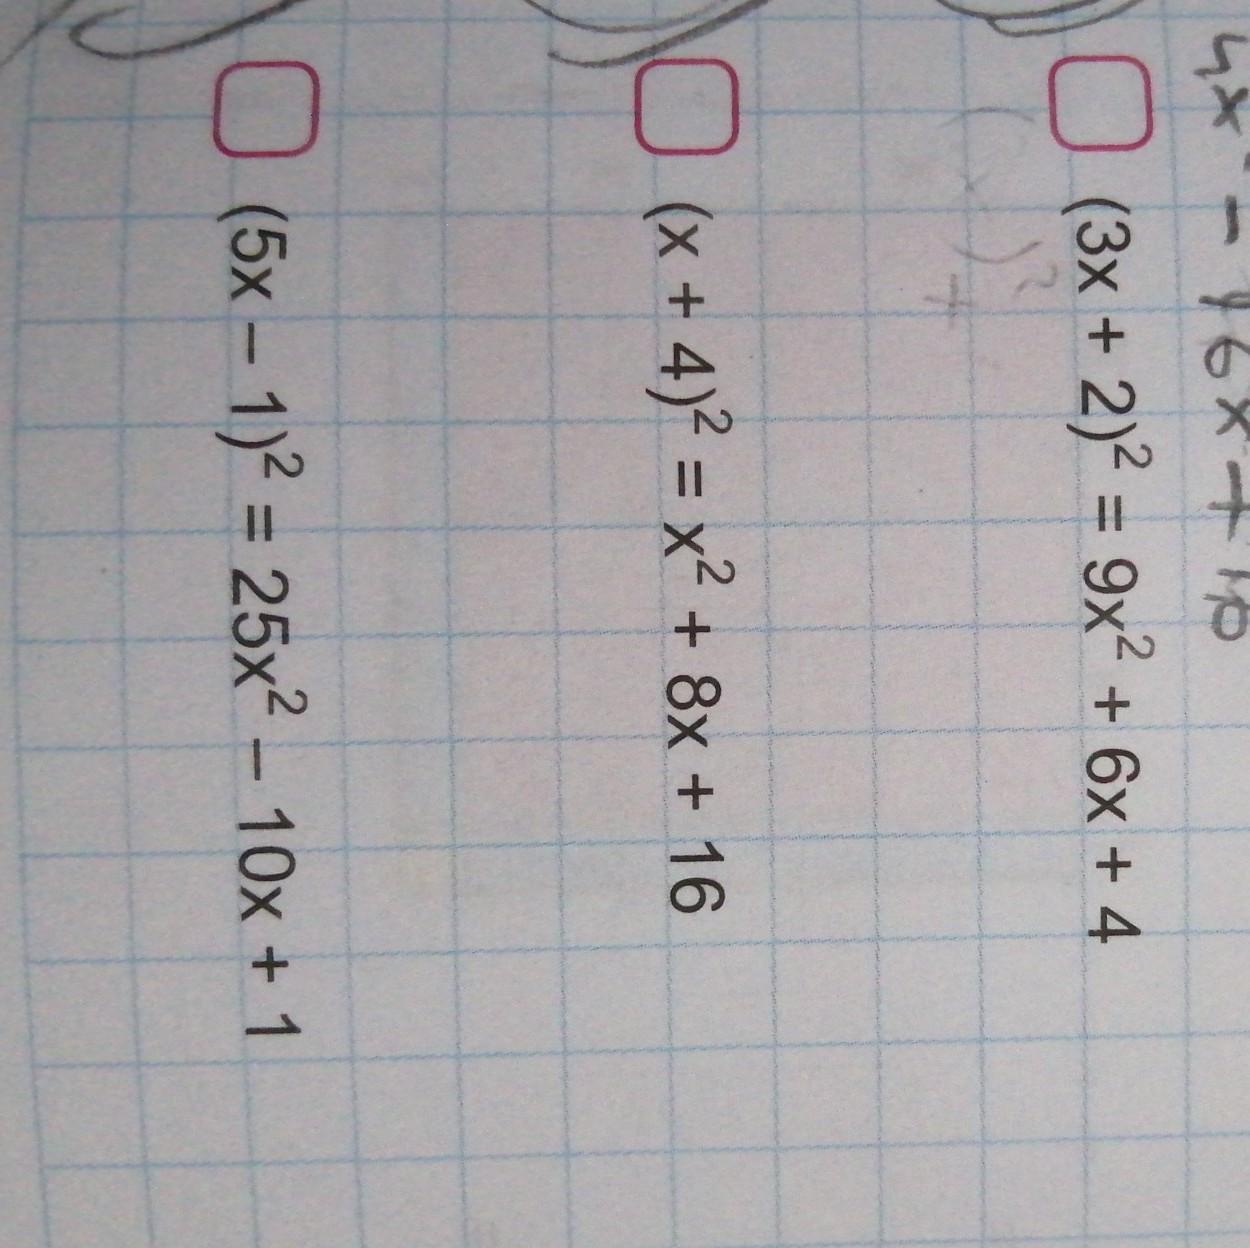 4x² - 16x + 16
(3x + 2)² = 9x² + 6x + 4
( x )² +
(x + 4)² = x² + 8x + 16
(5x – 1)² = 25x² – 10x + 1